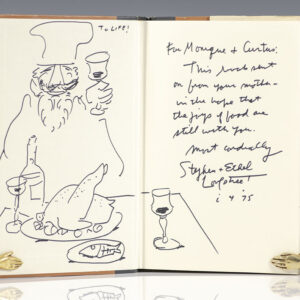 TO LIFE!
For Monique + Curtis:
This book sent
on from your mother -
in the hope that
the joys of food are
still with you.
most cordially
Stephen + Ethel
i 4 75